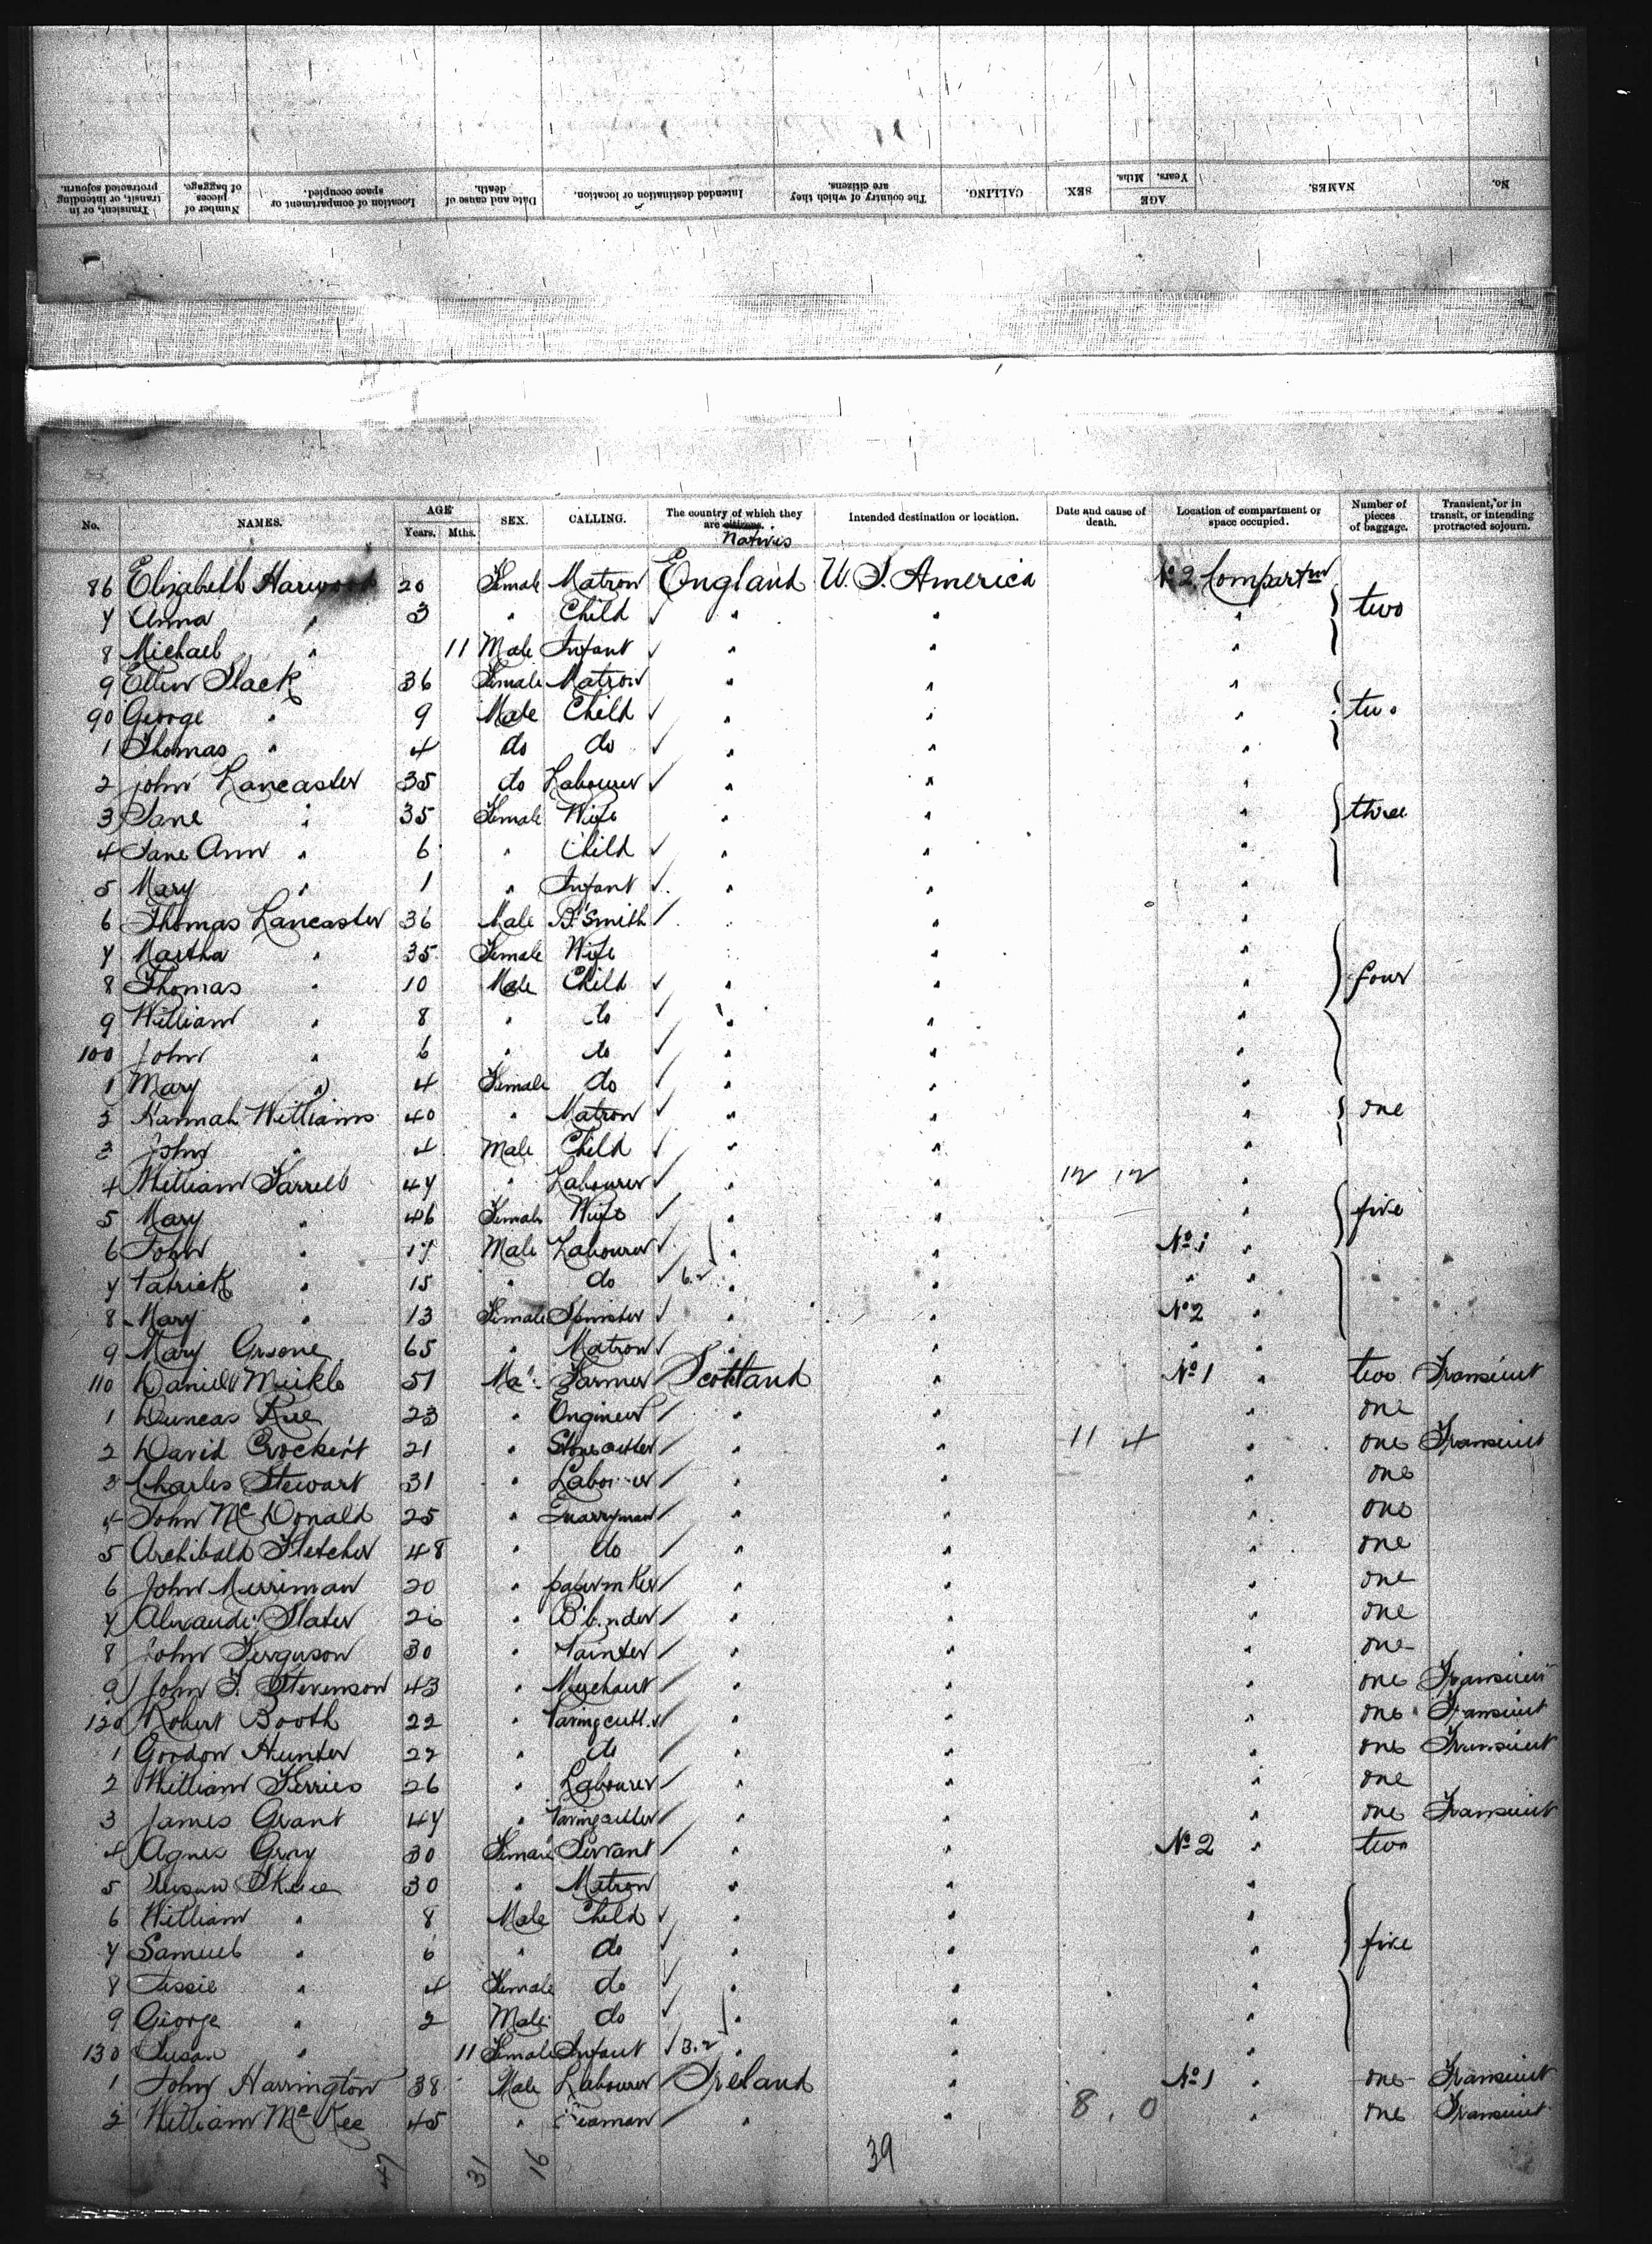 No. NAMES. AGE Years. Mths. SEX. CALLING. The country of which they are citizens. Intended destination or location. Date and cause of death. Location of compartment or space occupied. Number of pieces of baggage. Transient, or in transit, or intending protracted sojourn.
No. NAMES. AGE Years. Mths. SEX. CALLING. The country of which they are citizens. Natives Intended destination or location. Date and cause of death. Location of compartment or space occupied. Number of pieces of baggage. Transient, or in transit, or intending protracted sojourn.
86 Elizabeth Harwood 20 Female Matron England U. S. America No 2 Compartmt
7 Anna " 3 " Child " " " two
8 Michael " 11 Male Infant " " "
9 Ellen Slack 36 Female Matron " " "
90 George " 9 Male Child " " " two
1 Thomas " 4 do do " " "
2 John Lancaster 35 do Labourer " " "
3 Jane " 35 Female Wife " " " three
4 Jane Ann " 6 " Child " " "
5 Mary " 1 " Infant " " "
6 Thomas Lancaster 36 Male B'Smith " " "
7 Martha " 35 Female Wife " " "
8 Thomas " 10 Male Child " " " four
9 William " 8 " do " " "
100 John " 6 " do " " "
1 Mary " 4 Female do " " "
2 Hannah Williams 40 " Matron " " " one
3 John " 4 Male Child " " "
4 William Farrell 47 " Labourer " " 12 12 "
5 Mary " 46 Female Wife " " " five
6 John " 17 Male Labourer " " No 1 "
7 Patrick " 15 " do 6.2 " " " "
8 Mary " 13 Female Spinster " " No 2 "
9 Mary 65 " Matron " " " "
110 Daniel Meikle 51 Male Farmer Scotland " No 1 " two Transient
1 Duncas Rue 23 " Engineer " " " one
2 David Crockert 21 " Stonecutter " " 11 4 " one Transient
3 Charles Stewart 31 " Labourer " " " one
4 John McDonald 25 " Quarryman " " " one
5 Archibald Fletcher 48 " do " " " one
6 John Merriman 20 " papermker " " " one
7 Alexander Slater 26 " B'binder " " " one
8 John Ferguson 30 " Painter " " " one
9 John T. Stevenson 43 " Merchant " " " one Transient
120 Robert Booth 22 " Pavingcutt. " " " one Transient
1 Gordon Hunter 22 " do " " " one Transient
2 William Ferries 26 " Labourer " " " one
3 James Grant 47 " Pavingcutter " " " one Transient
4 Agnes Gray 30 Female Servant " " No 2 " two
5 Susan 30 " Matron " " "
6 William " 8 Male Child " " "
7 Samuel " 6 " do " " " five
8 Jessie " 4 Female do " " "
9 George " 2 Male do " " "
130 Susan " 11 Female Infant 3.2 " " "
1 John Harrington 38 Male Labourer Ireland " No 1 " one Transient
2 William McKee 45 " Seaman " " 8.0 " one Transient
47 31 16 39